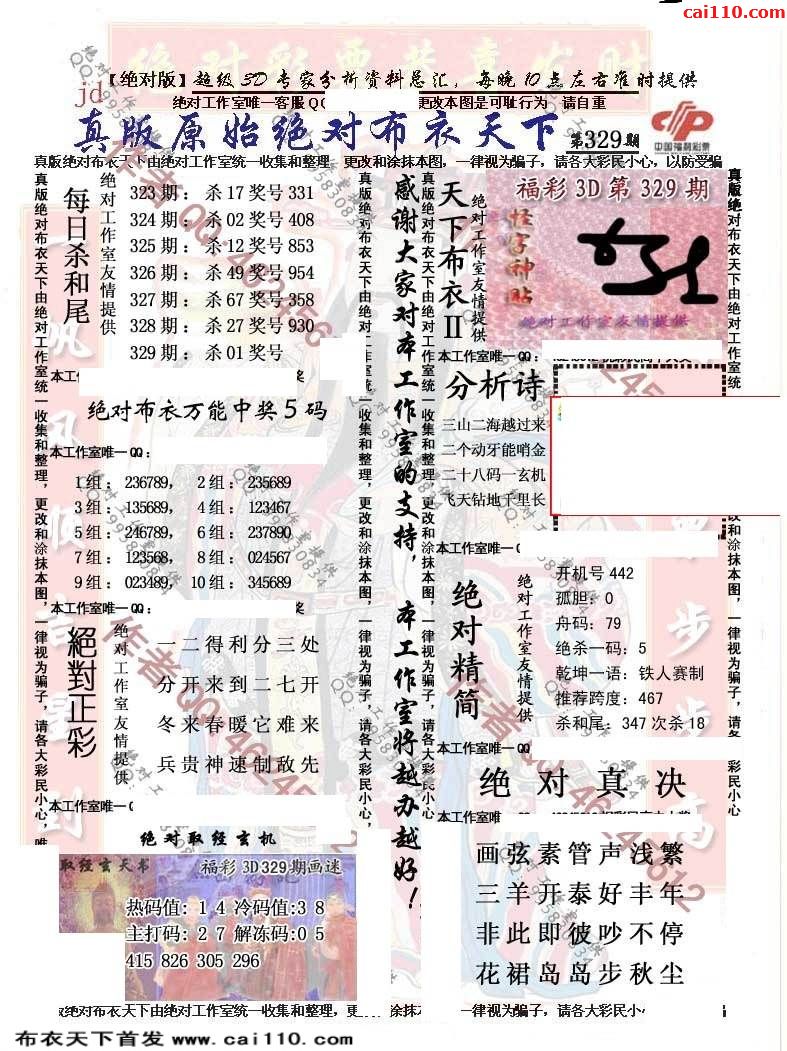 cai110.com
【绝对版】超级3D专家分析资料总汇，每晚10点左右准时提供
jd
绝对工作室唯一客服QQ 更改本图是可耻行为 请自重
真版原始绝对布衣天下 第329期
中国福利彩票
真版绝对布衣天下由绝对工作室统一收集和整理，更改和涂抹本图，一律视为骗子，请各大彩民小心，以防受骗
每日杀和尾
绝对工作室友情提供
323期：杀17奖号331
324期：杀02奖号408
325期：杀12奖号853
326期：杀49奖号954
327期：杀67奖号358
328期：杀27奖号930
329期：杀01奖号
本工
奖
绝对布衣万能中奖5码
本工作室唯一QQ：
1组：236789， 2组：235689
3组：135689， 4组：123467
5组：246789， 6组：237890
7组：123568， 8组：024567
9组：023489， 10组：345689
本工作室唯一QQ：
奖
絕對正彩
绝对工作室友情提供
一二得利分三处
分开来到二七开
冬来春暖它难来
兵贵神速制敌先
本工作室唯一Q
绝对取经玄机
取经玄天书
福彩3D329期画迷
热码值：1 4冷码值:3 8
主打码：2 7 解冻码:0 5
415 826 305 296
感谢大家对本工作室的支持，本工作室将越办越好！
天下布衣Ⅱ
绝对工作室友情提供
福彩3D第329期
怪字神贴
绝对工作室友情提供
本工作室唯一QQ：
分析诗
三山二海越过来
二个动牙能哨金
二十八码一玄机
飞天钻地千里长
本工作室唯一Q
绝对精简
绝对工作室友情提供
开机号442
孤胆：0
舟码：79
绝杀一码：5
乾坤一语：铁人赛制
推荐跨度：467
杀和尾：347次杀18
本工作室唯一QQ
绝对真决
本工作室唯一
画弦素管声浅繁
三羊开泰好丰年
非此即彼吵不停
花裙岛岛步秋尘
真版绝对布衣天下由绝对工作室统一收集和整理，更改和涂抹本图，一律视为骗子，请各大彩民小心，
版绝对布衣天下由绝对工作室统一收集和整理，更 涂抹本图，一律视为骗子，请各大彩民小心
布衣天下首发 www.cai110.com